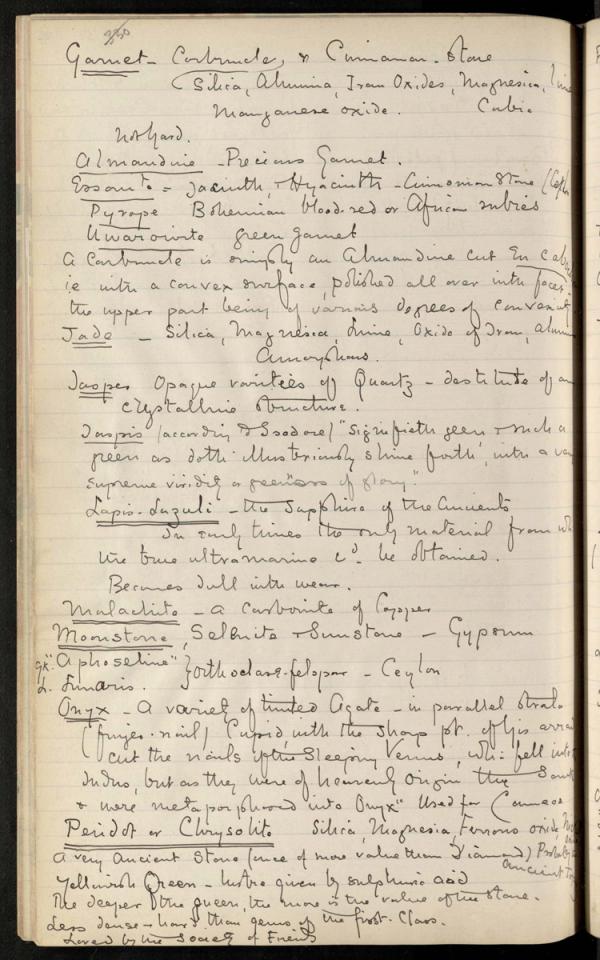 Garnet - Carbuncle, & Cinnamon-Stone
Silica, Alumina, Iron Oxides, Magnesia, lime
Manganese oxide. Cubic
Not hard.
Almandine - Precious Garnet.
= Jacinth, + Hyacinth - Cinnamon Stone
Pyrope Bohemian blood-red or African rubies
Uwarowite green garnet
A Carbuncle is simply an Almandine cut En
ie with a convex surface, polished all over with
the upper part being of various degrees of convexity
Jade - Silica, Magnesia, Lime, Oxide of Iron,
Amorphous.
Jasper Opaque varieties of Quartz - destitute of any
crystalline structure.
Iaspis (according to Isodore) "Signifieth green, & such a
green as doth illustriously shine forth with a
supreme viridity or greenness of glory."
Lapis-Lazuli - the Sapphire of the Ancients
In early times the only material from
the true ultramarine cd. be obtained.
Becomes dull with wear.
Malachite - a carbonite of Copper
Moonstone, Selenite & Sunstone - Gypsum
gk. "Aphoseline" } Orthoclase-felspar - Ceylon
L. Lunaris.
Onyx - A variety of tinted Agate - in parallel strata
(finger-nail) Cupid, with the sharp pt. of his
cut the nails of the Sleeping Venus, whi: fell into
Indus, but as they were of heavenly origin they
& were metamorphosed into Onyx" Used for Cameos
Peridot or Chrysolite Silica, Magnesia, Ferrous oxide,
A very Ancient Stone (once of more value than Diamond)
Yellowish Green - lustre given by sulphuric acid
The deeper the green, the more is the value of the stone.
Less dense & hard than gems of the first Class.
Loved by the Society of Friends